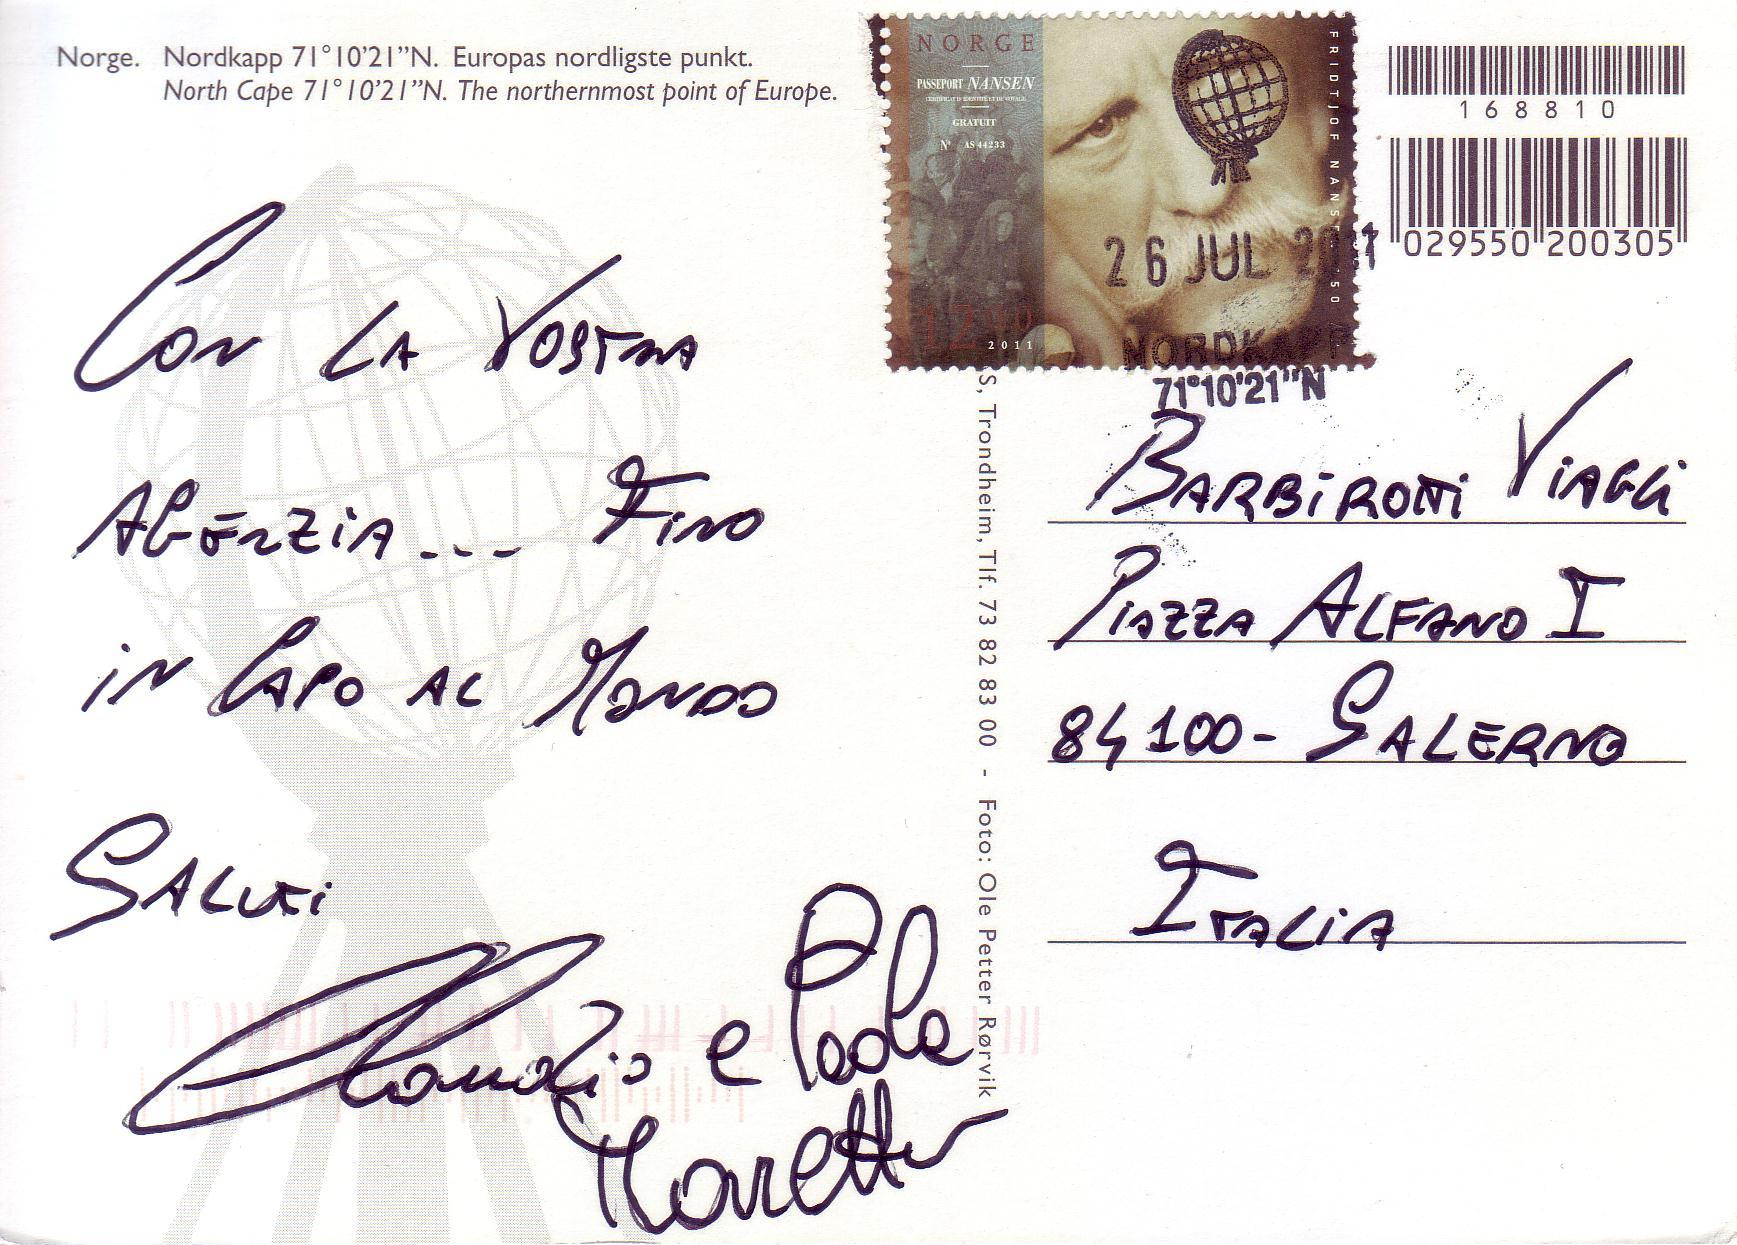 Norge. Nordkapp 71°10'21"N. Europas nordligste punkt.
North Cape 71°10'21"N. The northernmost point of Europe.
NORGE
PASSEPORT NANSEN
CERTIFICAT D'IDENTITE ET DE VOYAGE
GRATUIT
Nº AS 44233
12
2011
FRIDTJOF NANSEN
26 JUL 2011
NORDKAPP
71°10'21"N
168810
029550 200305
CON LA VOSTRA
AGENZIA... FINO
IN CAPO AL MONDO
SALUTI
Claudio e Paola
S, Trondheim, Tlf. 73 82 83 00 - Foto: Ole Petter Rørvik
BARBIROTTI VIAGGI
PIAZZA ALFANO I
84100 - SALERNO
ITALIA